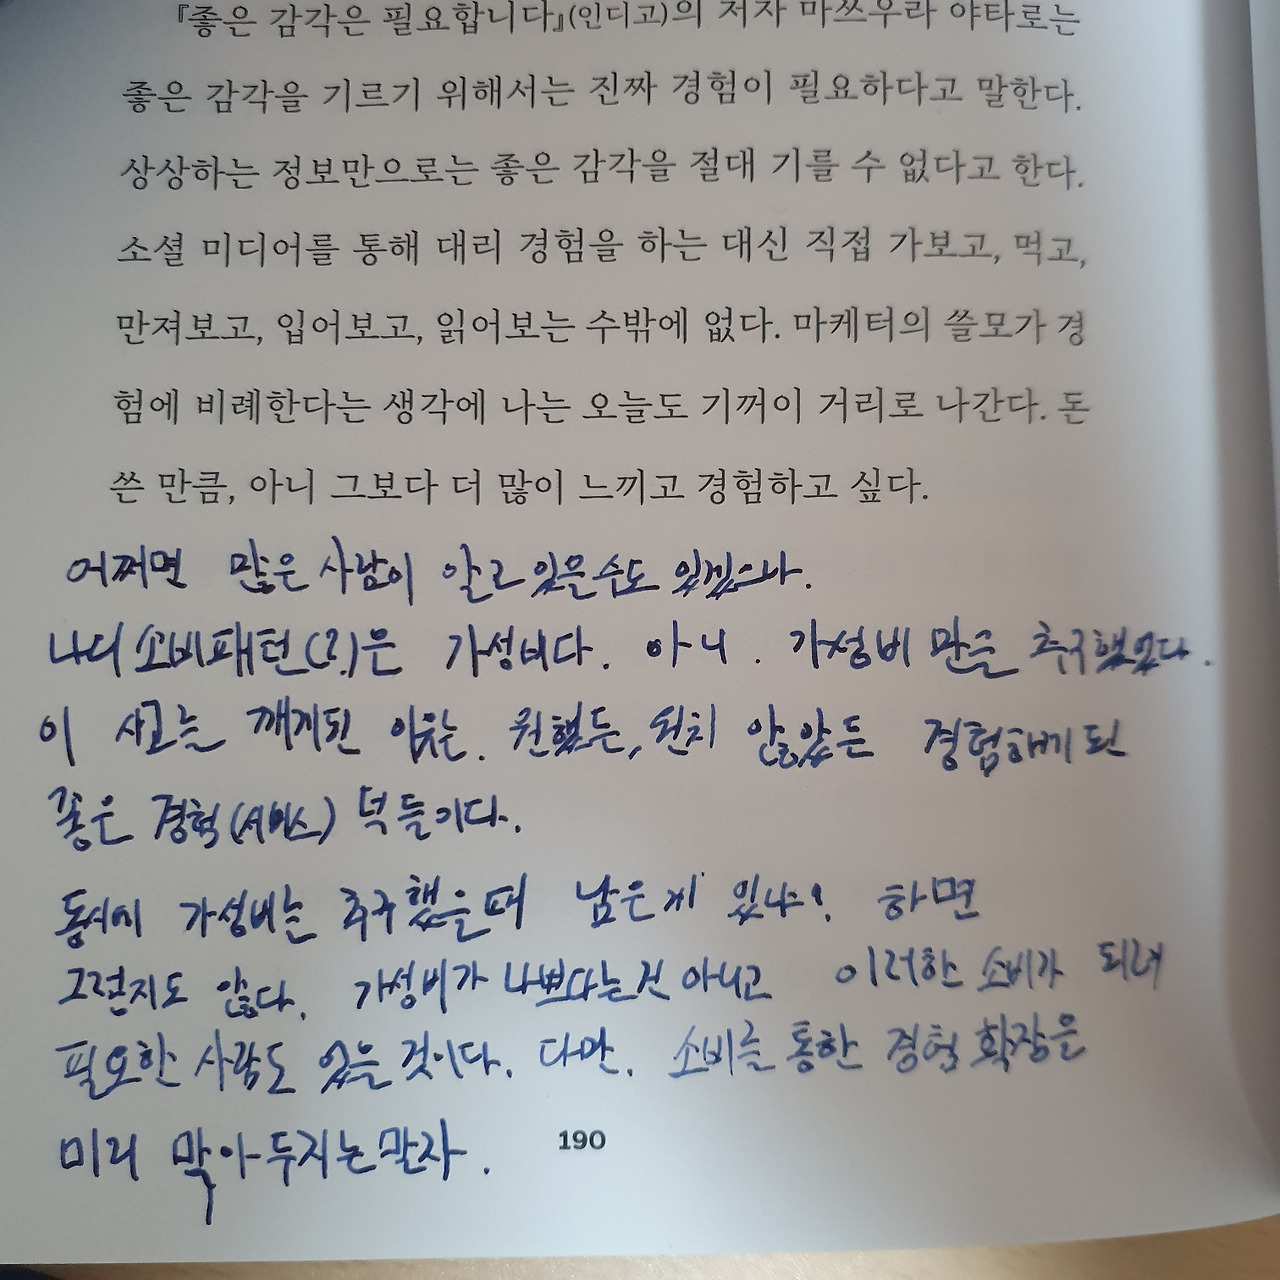 『좋은 감각은 필요합니다』(인디고)의 저자 마쓰우라 야타로는
좋은 감각을 기르기 위해서는 진짜 경험이 필요하다고 말한다.
상상하는 정보만으로는 좋은 감각을 절대 기를 수 없다고 한다.
소셜 미디어를 통해 대리 경험을 하는 대신 직접 가보고, 먹고,
만져보고, 입어보고, 읽어보는 수밖에 없다. 마케터의 쓸모가 경
험에 비례한다는 생각에 나는 오늘도 기꺼이 거리로 나간다. 돈
쓴 만큼, 아니 그보다 더 많이 느끼고 경험하고 싶다.
어쩌면 많은 사람이 알고 있을수도 있겠으나.
나의 소비패턴(?)은 가성비다. 아니. 가성비 만을 추구했었다.
이 사고는 깨지된 이유는. 원했든, 원치 않았든 경험하게 된
좋은 경험(서비스) 덕들이다.
동시에 가성비는 추구했을때 남은게 있냐?. 하면
그런지도 않다. 가성비가 나쁘다는건 아니고 이러한 소비가 되려
필요한 사람도 있을 것이다. 다만. 소비를 통한 경험 확장을
미리 막아두지는 말자.
190